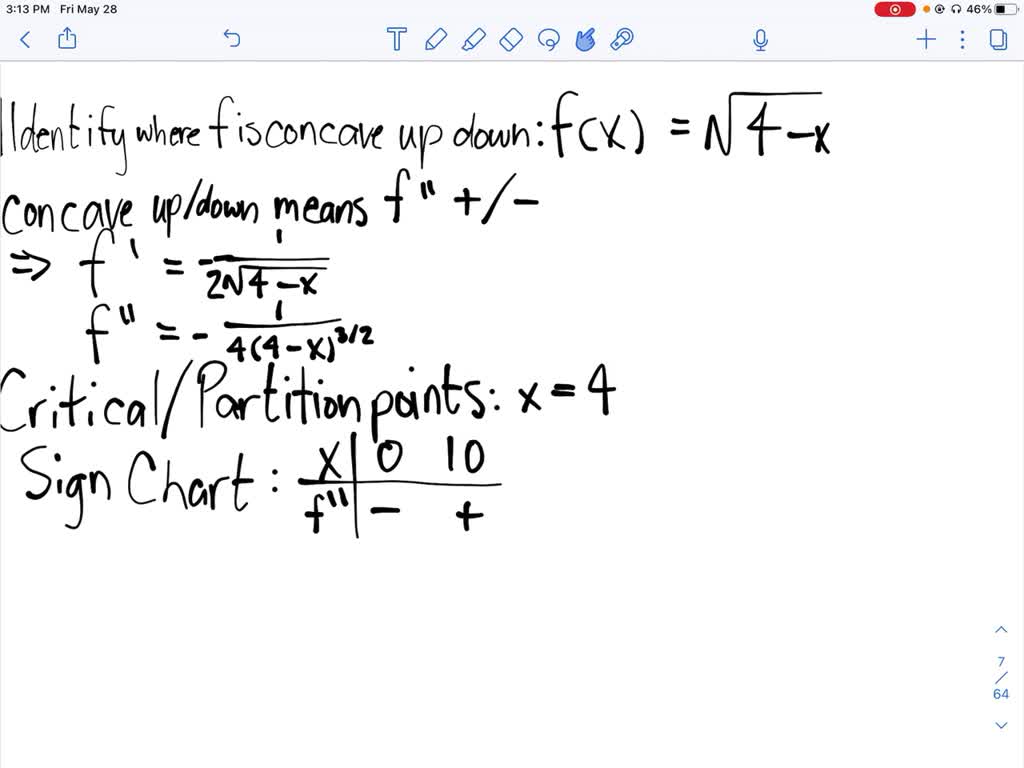 3:13 PM Fri May 28
46%
Identify where f is concave up down: f(x) = √4-x
concave up/down means f" +/-
⇒ f' = - 1/2√4-x
f" = - 1/4(4-x)^3/2
Critical/Partition points: x = 4
Sign Chart: x | 0 10
f" | - +
7
/
64